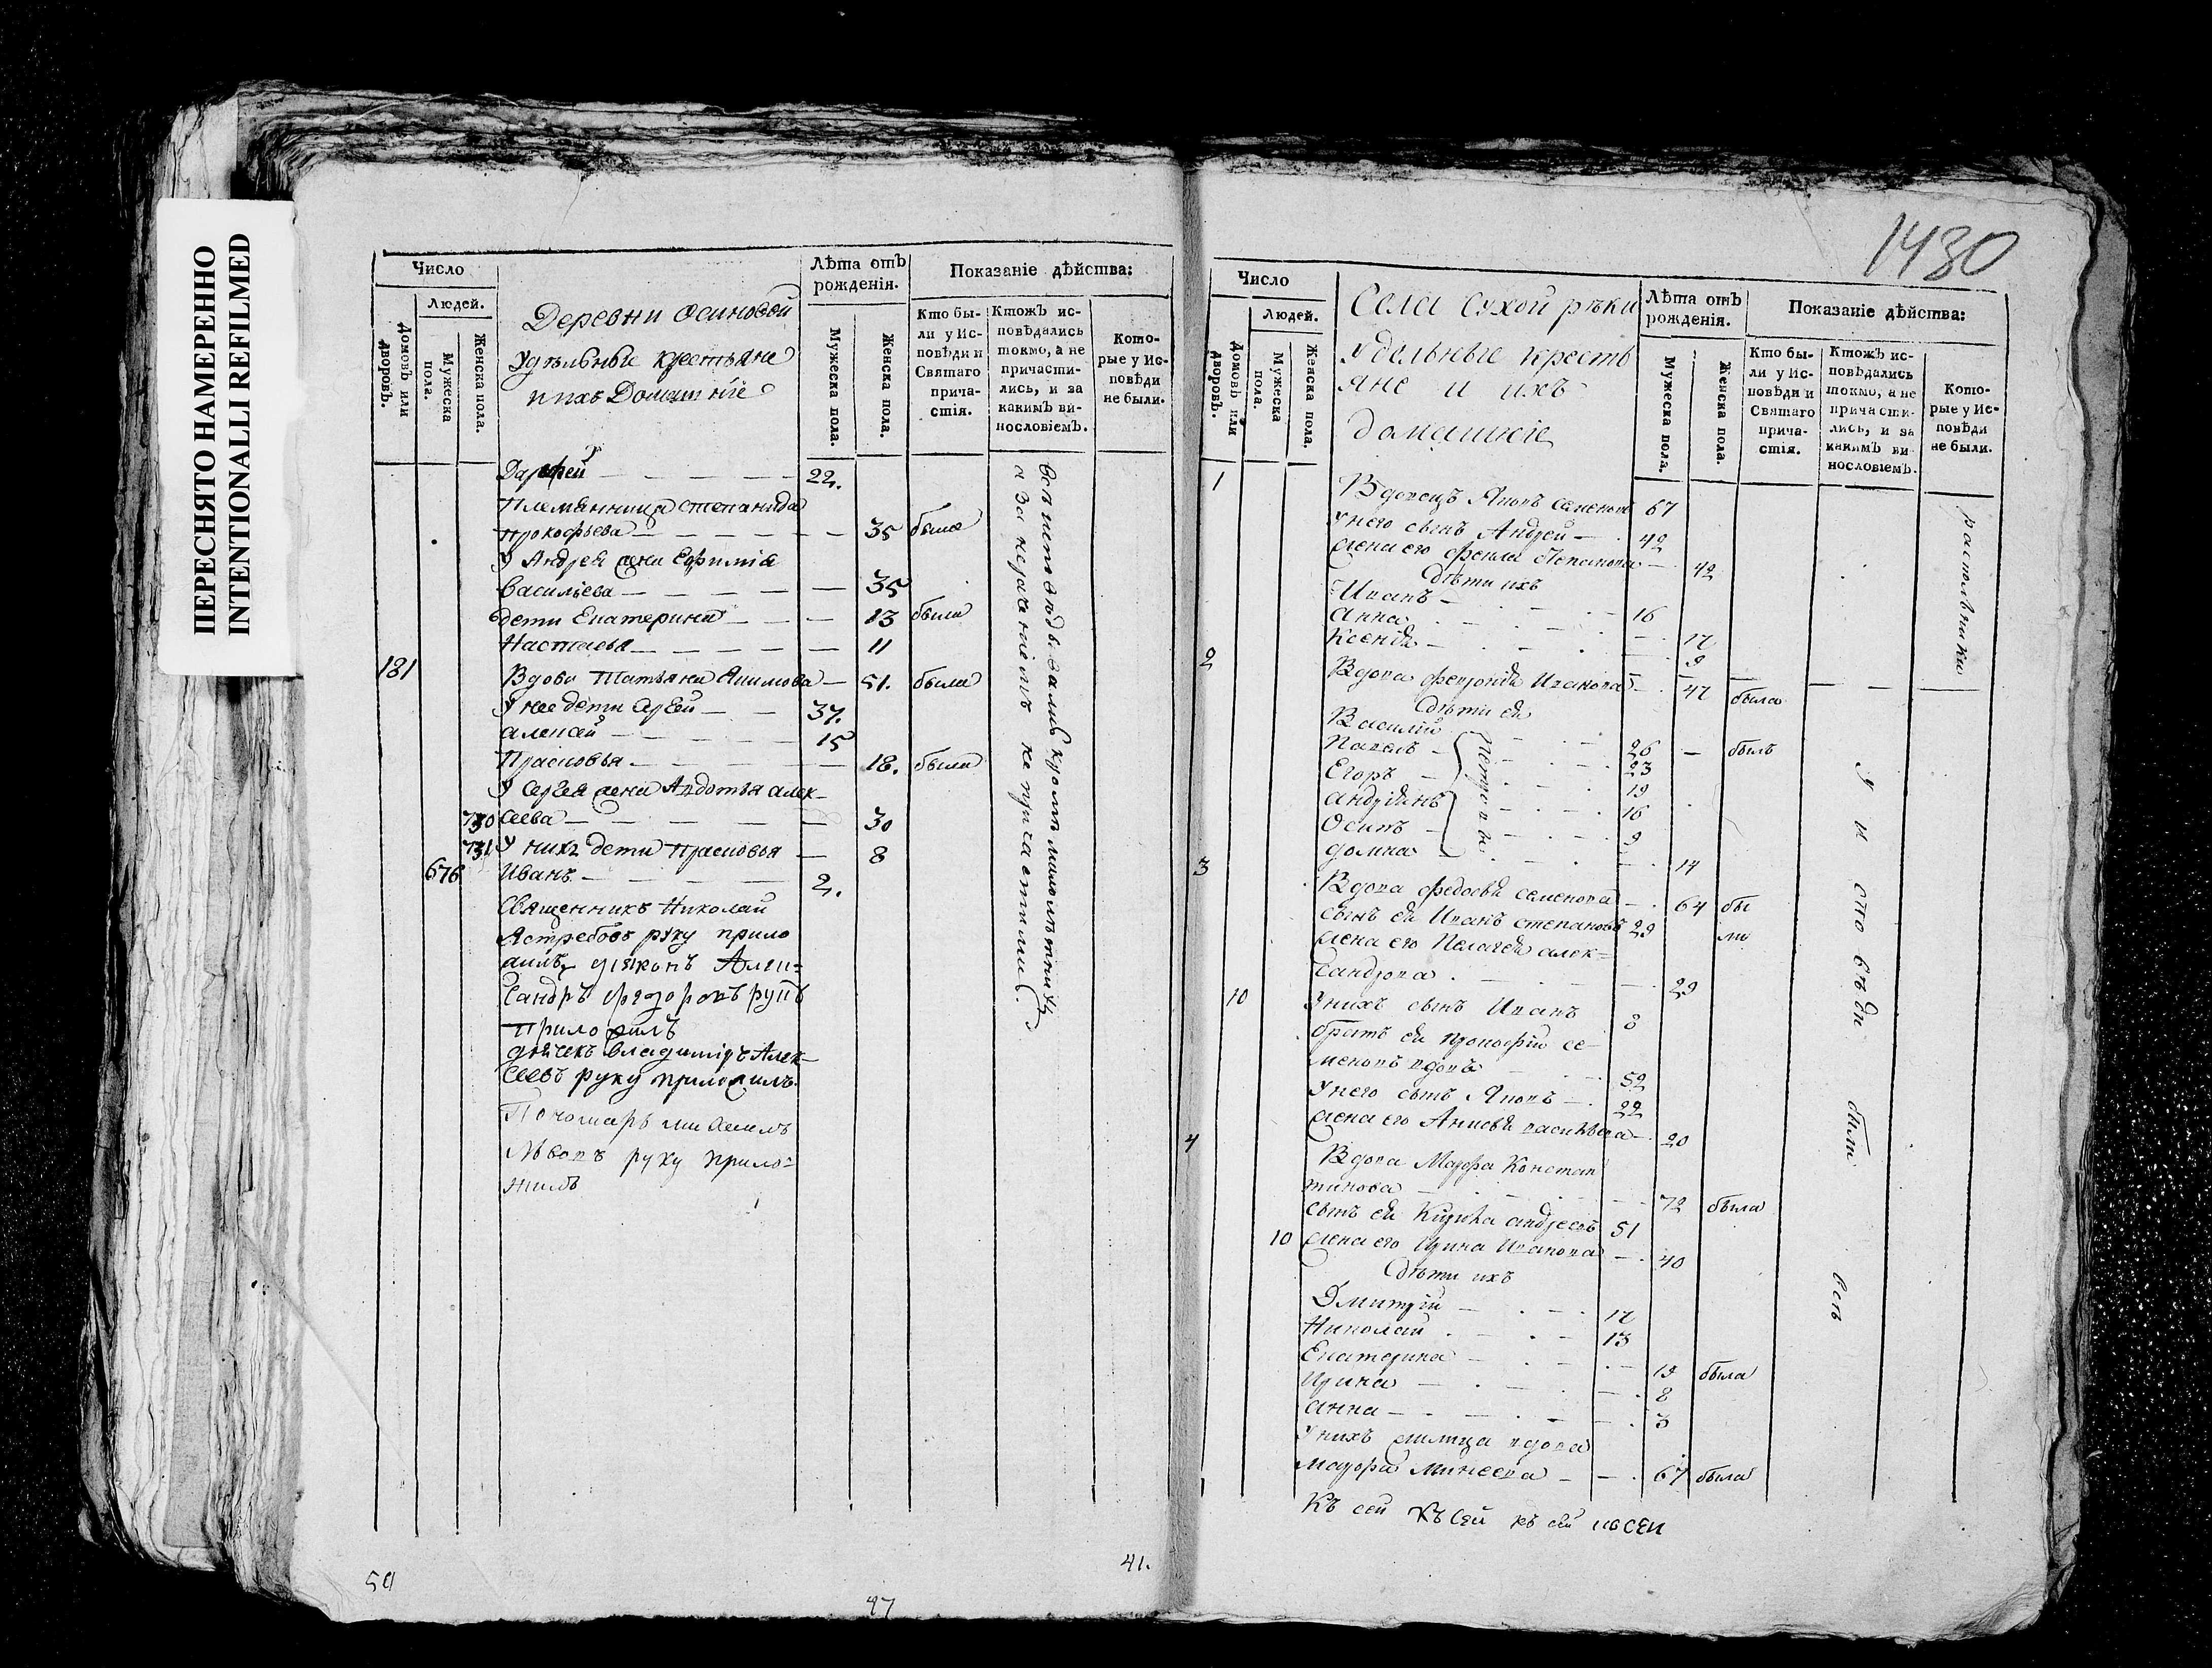 ПЕРЕСНЯТО НАМЕРЕННО
INTENTIONALLI REFILMED
Число
Людей.
Домовъ или дворовъ.
Мужеска пола.
Женска пола.
Деревни Осиновой
Удѣльные крестьяне
и ихъ Домашніе
Лѣта отъ рожденія.
Мужеска пола.
Женска пола.
Показаніе дѣйства:
Кто бы-
ли у Ис-
повѣди и
Святаго
прича-
стія.
Ктожъ ис-
повѣдались
токмо, а не
причасти-
лись, и за
какимъ ви-
нословіемъ.
Кото-
рые у Ис-
повѣди
не были.
22.
Племянница Степанида
Прокофьева 35 была
У Андрея жена Ефимія
Васильева 35
дети Екатерина 13 была
Настасья 11
181 Вдова Татьяна Якимова 51. была
У нее дети Сергей 37.
Алексей 15
Прасковья 18. была
У Сергея жена Авдотья Алек-
730 сеева 30
731 У нихъ дети Прасковья 8
676 Иванъ 2.
Священникъ Николай
Ястребовъ руку прило
жилъ диаконъ Алек=
сандръ Федоровъ руку
приложилъ
дьячекъ Владимиръ Алек-
сеевъ руку приложилъ.
Пономарь Михаилъ
Львовъ руку прило=
жилъ
50
47
41.
1430
Число
Людей.
Домовъ или дворовъ.
Мужеска пола.
Женска пола.
Села Сухой рѣки
Удельные кресть
яне и ихъ
домашніе
Лѣта отъ рожденія.
Мужеска пола.
Женска пола.
Показаніе дѣйства:
Кто бы-
ли у Ис-
повѣди и
Святаго
прича-
стія.
Ктожъ ис-
повѣдались
токмо, а не
причасти-
лись, и за
какимъ ви-
нословіемъ.
Кото-
рые у Ис-
повѣди
не были.
1 Вдовецъ Яковъ Семеновъ 67
У него сынъ Андрей 42
жена его Фекла 42
дѣти ихъ
Иванъ 16
Анна 12
Ксенія 9
раскольники
2 Вдова Феврония Иванова 47 была
дѣти ея
Василій 26 былъ
Павелъ 23
Егоръ 19
Андріянъ 16
Осипъ 9
Петровы
Домна 14
3 Вдова Федосья Семенова 64 бы
сынъ ея Иванъ Степановъ 29 ли
жена его Пелагея Алек=
сандрова 29
10 У нихъ сынъ Иванъ 8
братъ ея Прокофій Се-
меновъ вдовъ 52
У него сынъ Яковъ 22
жена его Анисья Васильева 20
4 Вдова Марфа Констан
тинова 72 была
сынъ ея Кирила Андреевъ 51
10 жена его Ирина Иванова 40
дѣти ихъ
Дмитрій 12
Николай 13
Екатерина 19 была
Ирина 8
Анна 3
У нихъ вдова
Марфа Минеева 67 была
У и спо вѣди были всѣ
Къ сей Къ сей къ сей